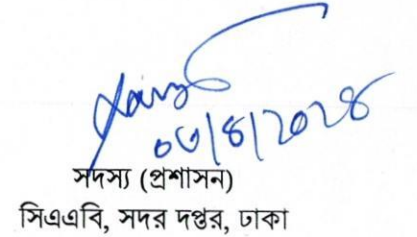 ০৩/৪/২০২৪
সদস্য (প্রশাসন)
সিএএবি, সদর দপ্তর, ঢাকা